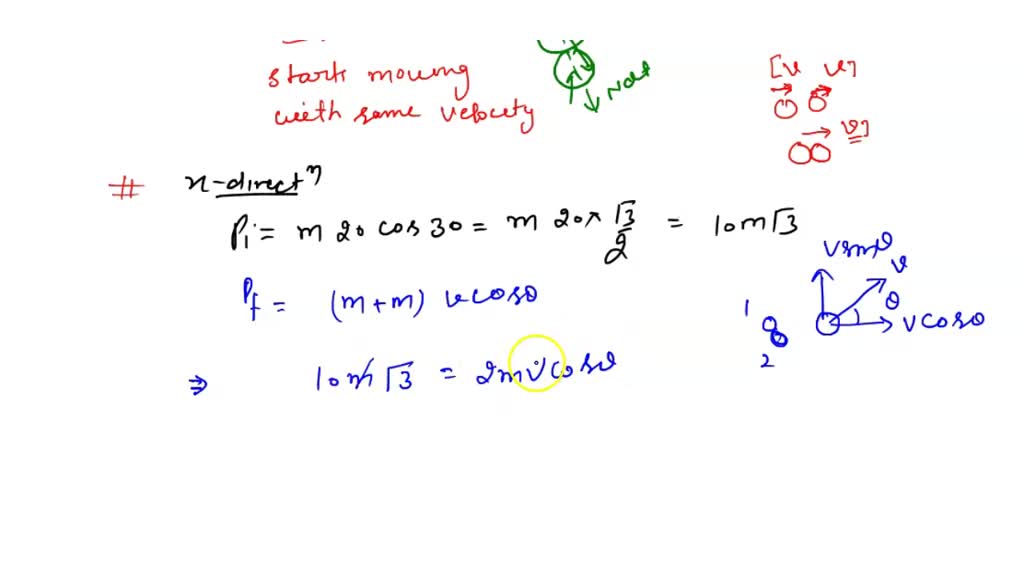 starts moving
with same velocity
Not
[v v]
v]
# x-directⁿ
Pi = m 20 cos 30 = m 20 × √3/2 = 10m√3
Pf = (m+m) v cosθ
⇒ 10m√3 = 2mv cosθ
v sinθ
v
θ
v cosθ
1
2